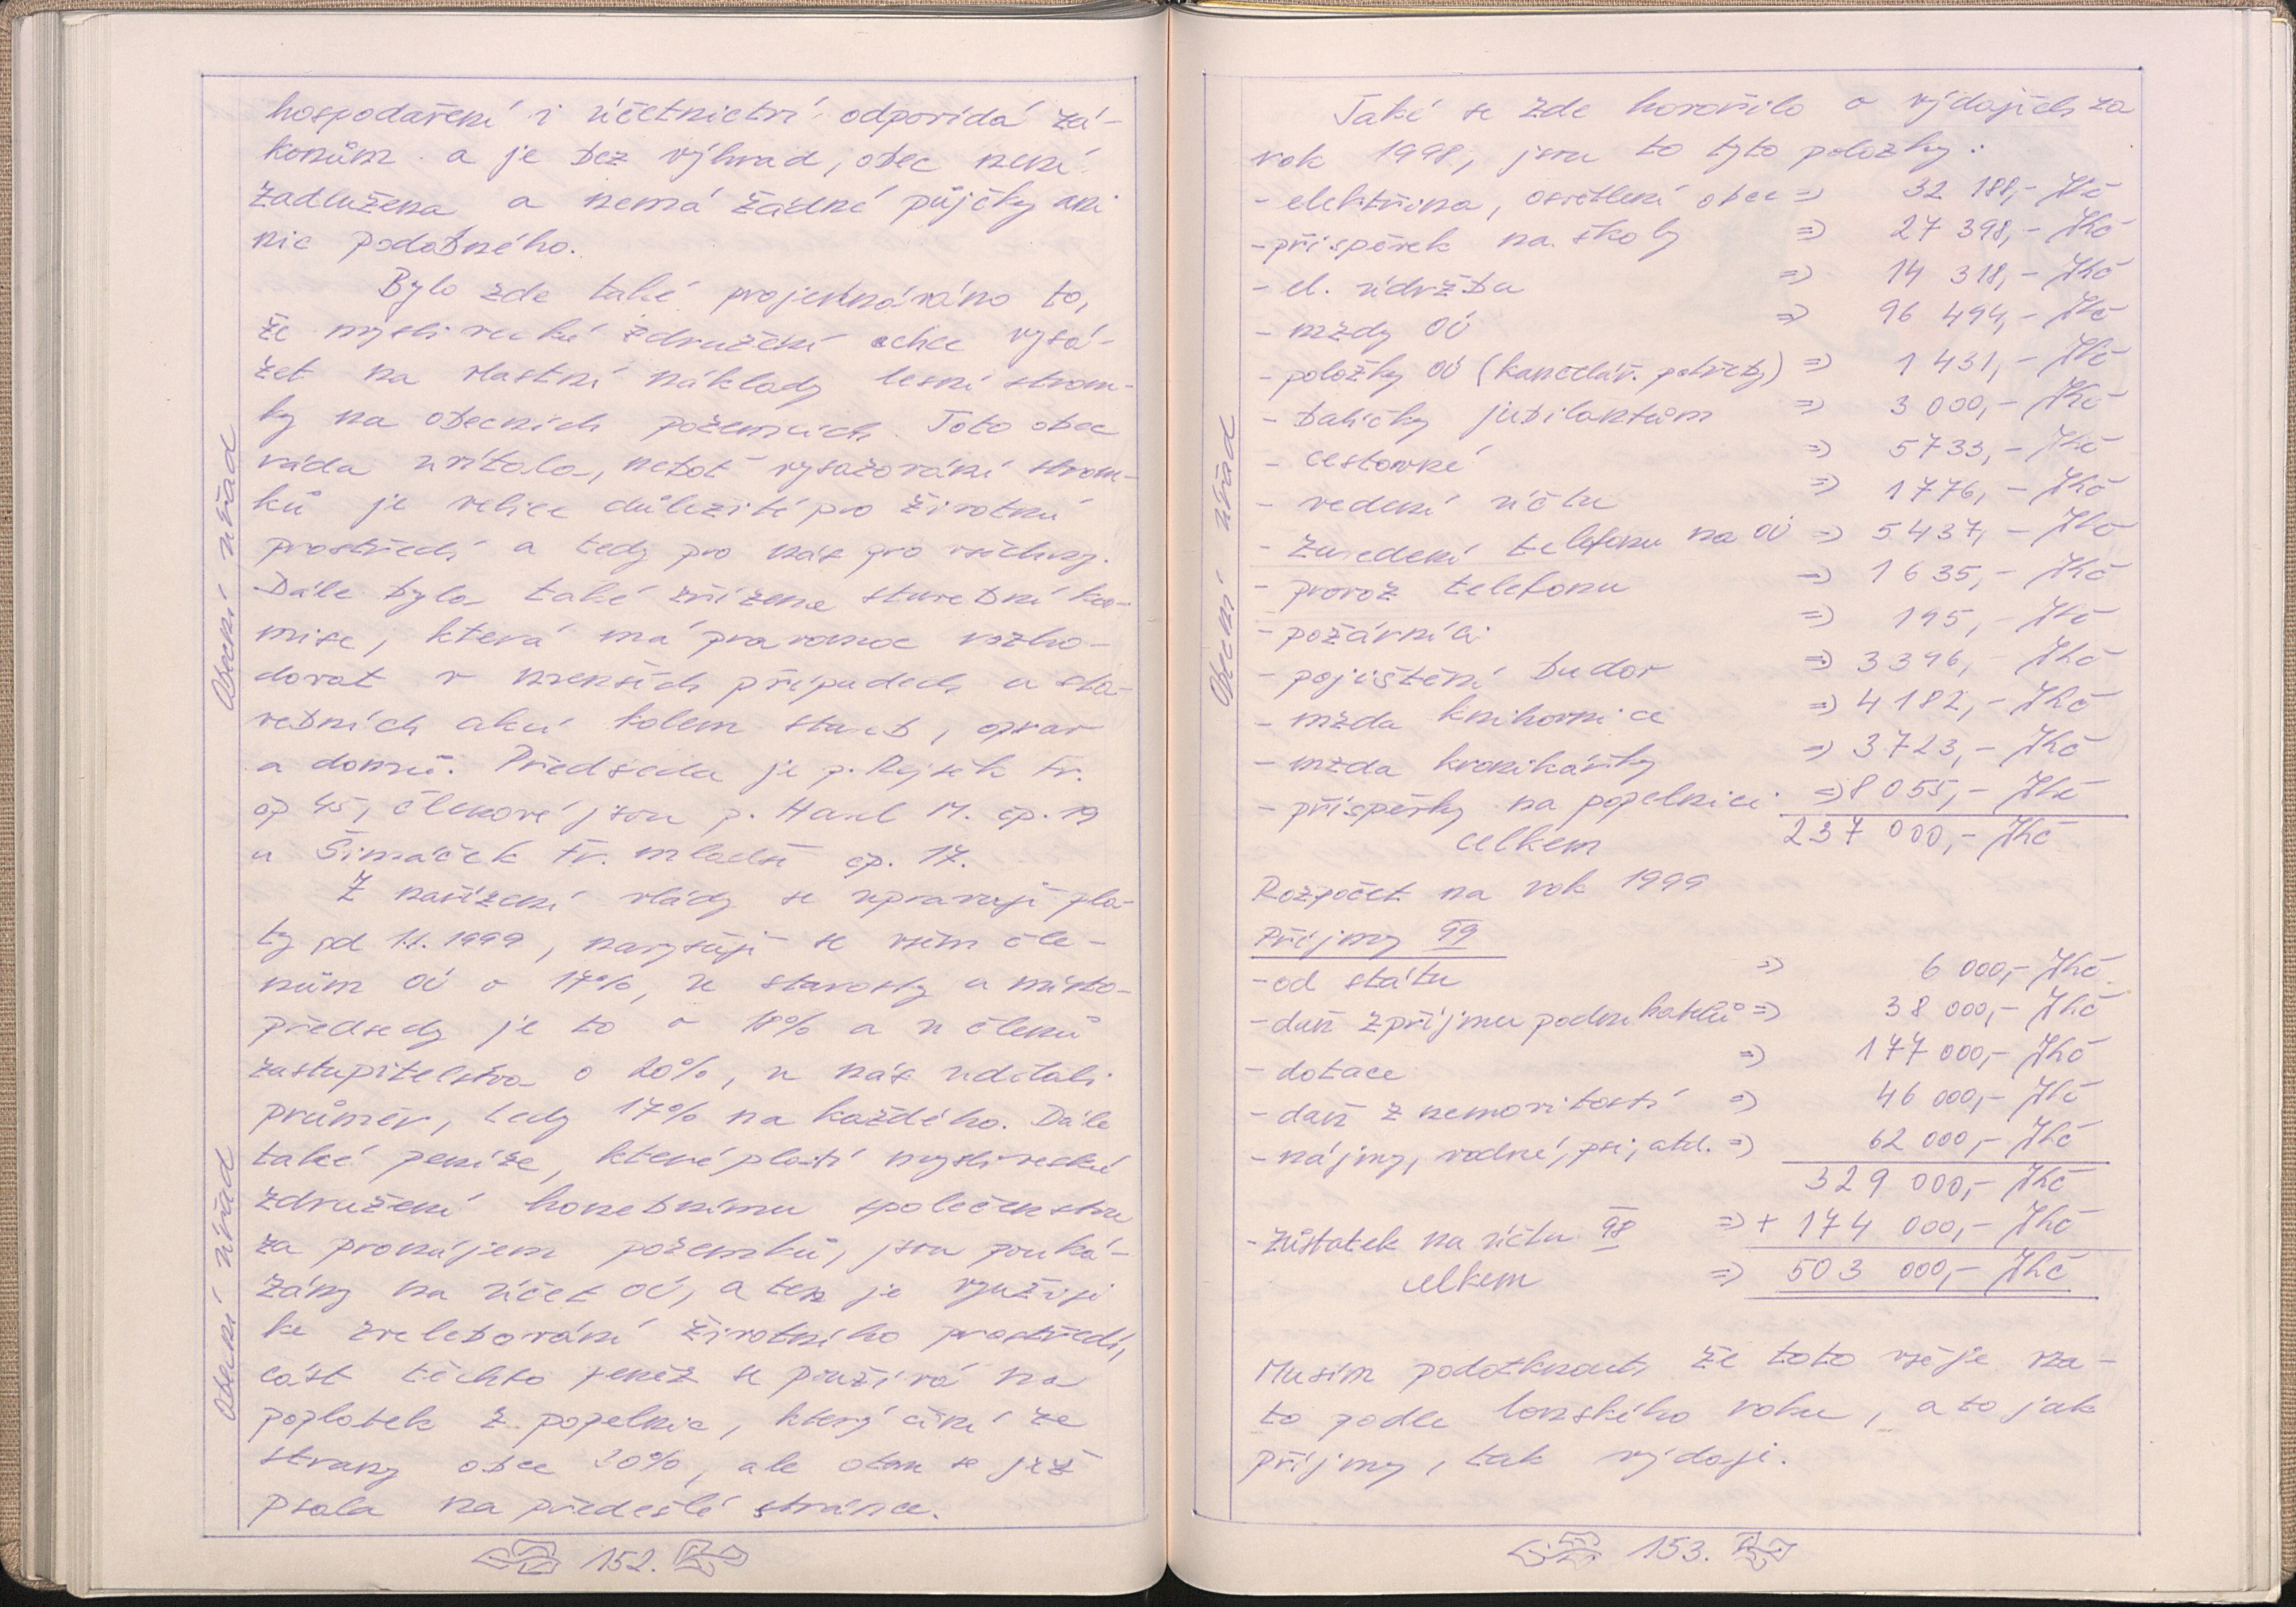 hospodaření i účetnictví odpovídá zá-
konům a je bez výhrad, obec není
zadlužena a nemá žádné půjčky ani
nic podobného.
Bylo zde také projednáváno to,
že myslivecké združení chce vysá-
zet na vlastní náklady lesní strom-
ky na obecních pozemcích. Toto obec
ráda uvítala, neboť vysazování strom-
ků je velice důležité pro životní
prostředí a tedy pro nás pro všechny.
Dále byla také zřízena stavební ko-
mise, která má pravomoc rozho-
dovat v menších případech a sta-
vebních akcí kolem staveb, oprav
a domů. Předseda je p. Rejsek Fr.
čp 45, členové jsou p. Hanl M. čp. 19
a Šimáček Fr. mladší čp. 17.
Z nařízení vlády se upravují pla-
ty od 1.1. 1999, navyšují se všem čle-
nům OÚ o 17%, u starosty a místo-
předsedy je to o 18% a u členů
zastupitelstva o 20%, u nás udělali
průměr, tedy 17% na každého. Dále
také peníze, které platí myslivecké
združení honebnímu společenstvu
za pronájem pozemků, jsou pouká-
zány na účet OÚ, a ten je využiji
ke zvelebování životního prostředí,
část těchto peněz se používá na
poplatek z popelnic, který činí ze
strany obce 20%, ale otom se již
psala na předešlé stránce.
Obecní úřad
Obecní úřad
152.
Také se zde hovořilo o výdajích za
rok 1998, jsou to tyto položky:
- elektřina, osvětlení obce => 32 188,- Kč
- příspěvek na školy => 27 398,- Kč
- el. údržba => 14 318,- Kč
- mzdy OÚ => 96 494,- Kč
- položky OÚ (kancelář. potřeby) => 1 431,- Kč
- balíčky jubilantům => 3 000,- Kč
- cestovné => 5733,- Kč
- vedení účtu => 1776,- Kč
- zavedení telefonu na OÚ => 5437,- Kč
- provoz telefonu => 1635,- Kč
- požárníci => 195,- Kč
- pojištění budov => 3396,- Kč
- mzda knihovnice => 4182,- Kč
- mzda kronikářky => 3723,- Kč
- příspěvky na popelnice => 8055,- Kč
celkem 237 000,- Kč
Rozpočet na rok 1999
Příjmy 99
- od státu => 6 000,- Kč
- daň z příjmu podnikatelů => 38 000,- Kč
- dotace => 177 000,- Kč
- daň z nemovitostí => 46 000,- Kč
- nájmy, vodné, psi, atd. => 62 000,- Kč
329 000,- Kč
- zůstatek na účtu 98 => + 174 000,- Kč
celkem => 503 000,- Kč
Musím podotknout, že toto vše je vza-
to podle lonského roku, a to jak
příjmy, tak výdaje.
Obecní úřad
153.